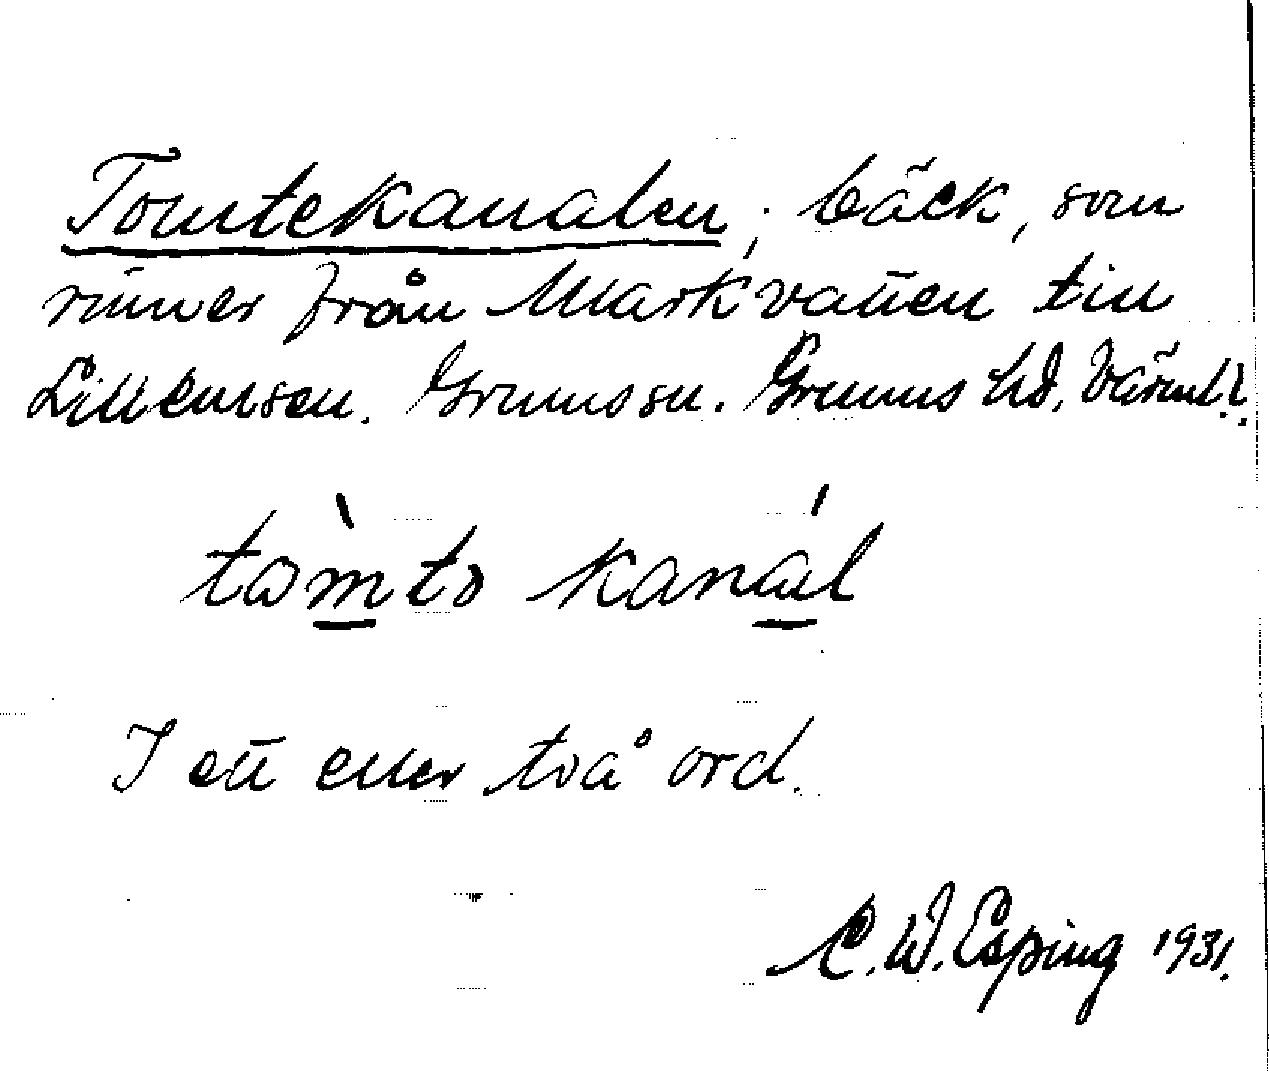 Tomtekanalen, bäck, som
rinner från Markvatten till
Lillemsen. Grumssn. Grums hd, Värml.
tòmto kanál
I ett eller två ord.
C. W. Esping 1931.